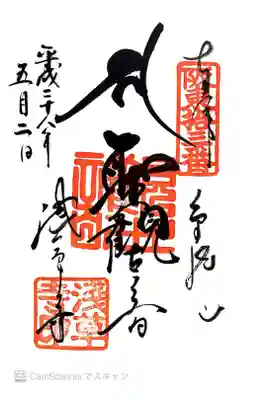 坂東拾三番
金龍山
聖観世音
浅草寺
平成二十八年
五月二日
浅草
CamScanner でスキャン